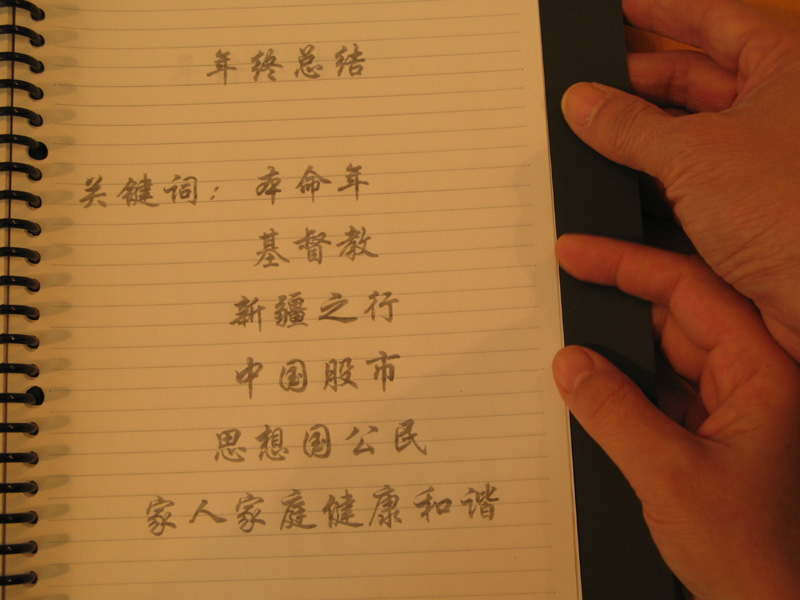 年终总结
关键词：本命年
基督教
新疆之行
中国股市
思想国公民
家人家庭健康和谐